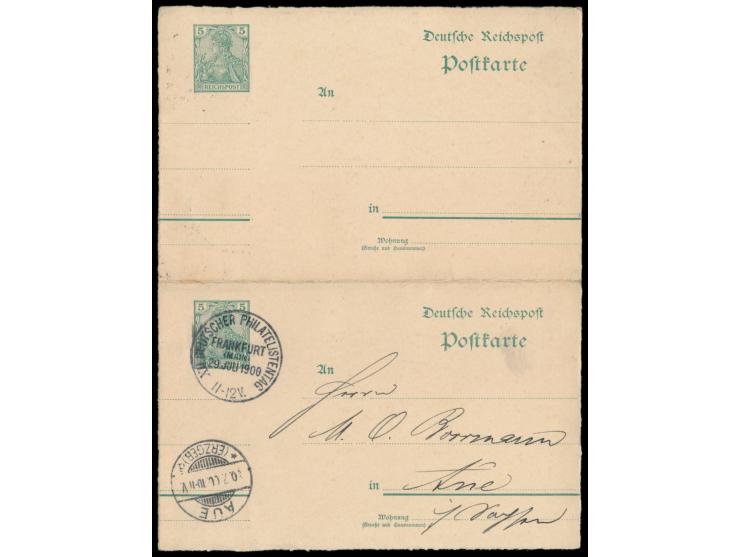 5 5
REICHSPOST
Deutsche Reichspost
Postkarte
An
in
Wohnung
(Straße und Hausnummer)
5 5
XII. DEUTSCHER PHILATELISTENTAG
FRANKFURT
(MAIN)
29 JULI 1900
11-12V.
Deutsche Reichspost
Postkarte
An Herrn
M. O. Borrmann
in Aue
i/ Sachsen
Wohnung
(Straße und Hausnummer)
* (ERZGEB)
10-11V.
AUE